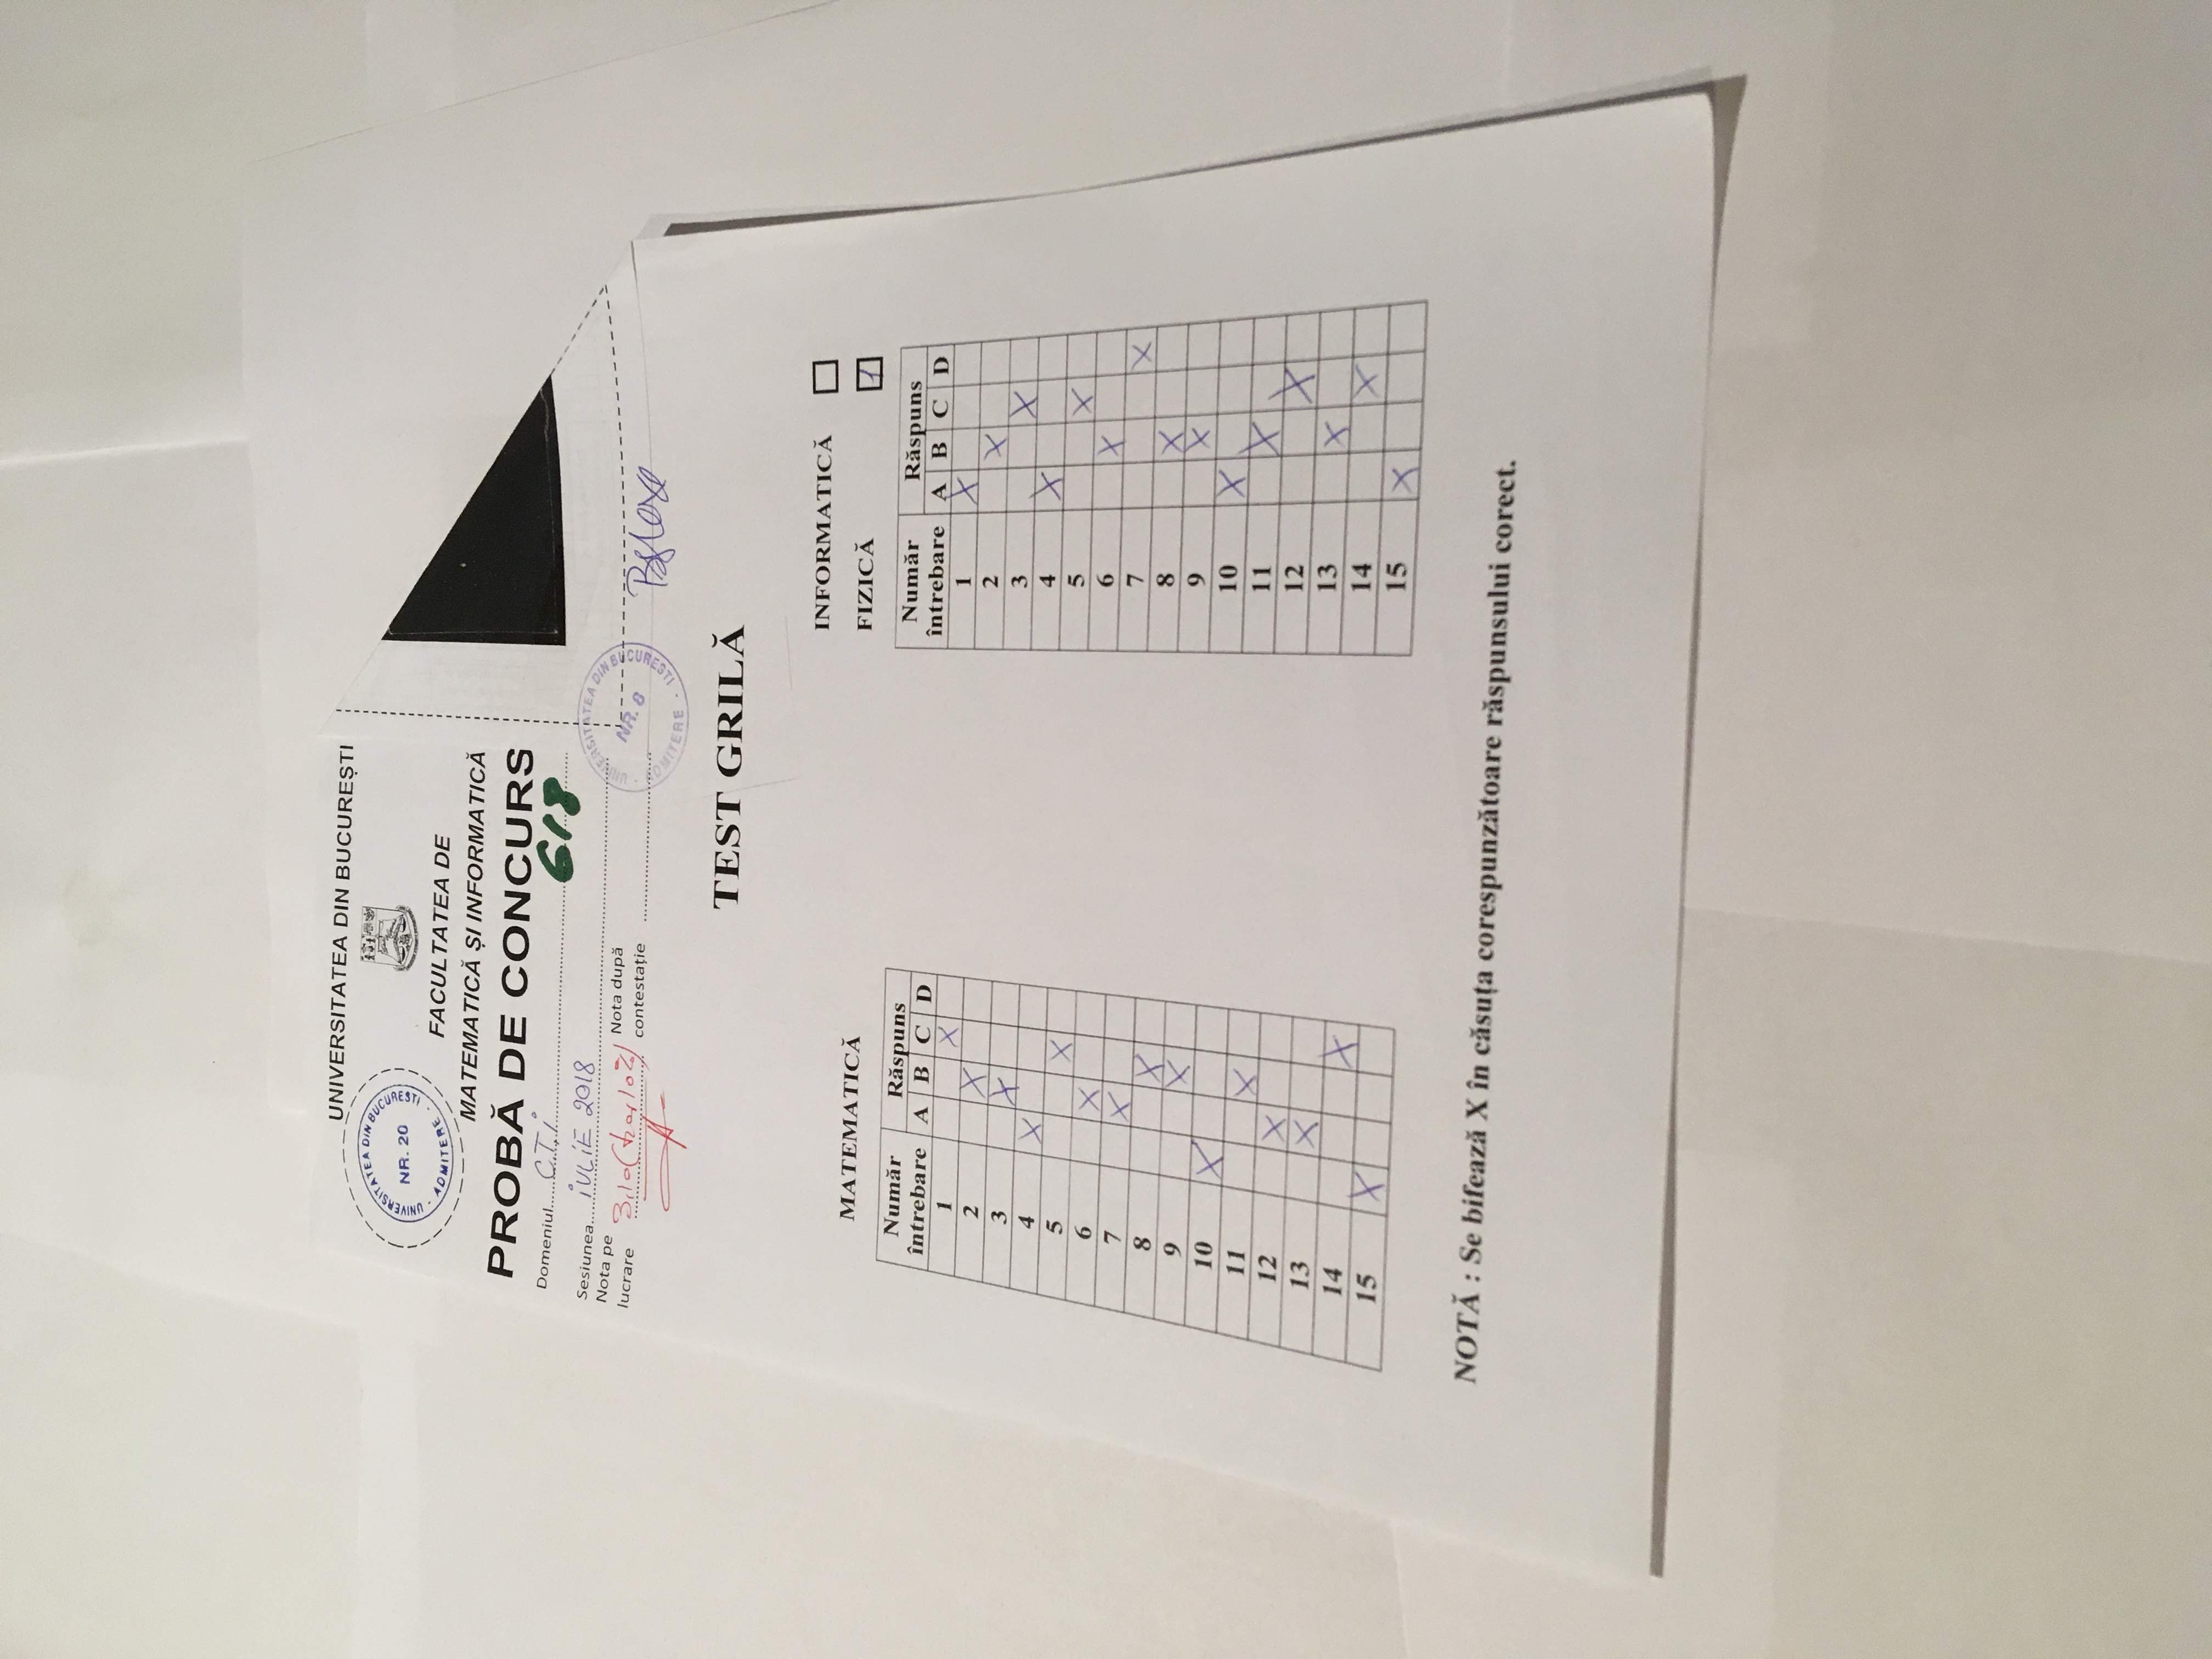 UNIVERSITATEA DIN BUCUREȘTI
UNIVERSITATEA DIN BUCUREȘTI
NR. 20
· ADMITERE ·
FACULTATEA DE
MATEMATICĂ ȘI INFORMATICĂ
PROBĂ DE CONCURS
Domeniul C.T.i 618
Sesiunea iULiE 2018
Nota pe lucrare 3,10
Nota după contestație
UNIVERSITATEA DIN BUCUREȘTI
NR. 8
· ADMITERE ·
TEST GRILĂ
MATEMATICĂ
Număr întrebare Răspuns
A B C D
1 X
2 X
3 X
4 X
5 X
6 X
7 X
8 X
9 X
10 X
11 X
12 X
13 X
14 X
15 X
INFORMATICĂ
FIZICĂ 1
Număr întrebare Răspuns
A B C D
1 X
2 X
3 X
4 X
5 X
6 X
7 X
8 X
9 X
10 X
11 X
12 X
13 X
14 X
15 X
NOTĂ : Se bifează X în căsuța corespunzătoare răspunsului corect.